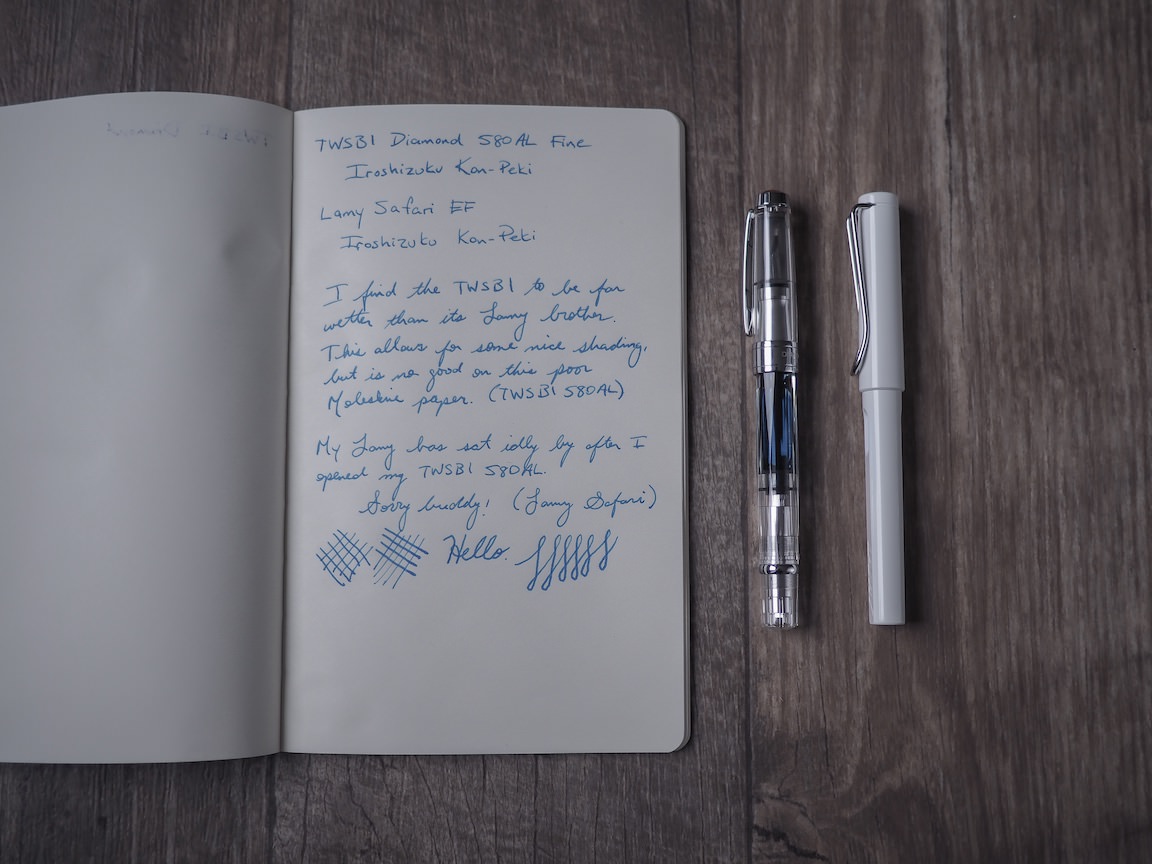 TWSBI Diamond 580AL Fine
Iroshizuku Kon-Peki
Lamy Safari EF
Iroshizuku Kon-Peki
I find the TWSBI to be far
wetter than its Lamy brother.
This allows for some nice shading,
but is no good on this poor
Moleskine paper. (TWSBI 580AL)
My Lamy has sat idly by after I
opened my TWSBI 580AL.
Sorry buddy! (Lamy Safari)
Hello.